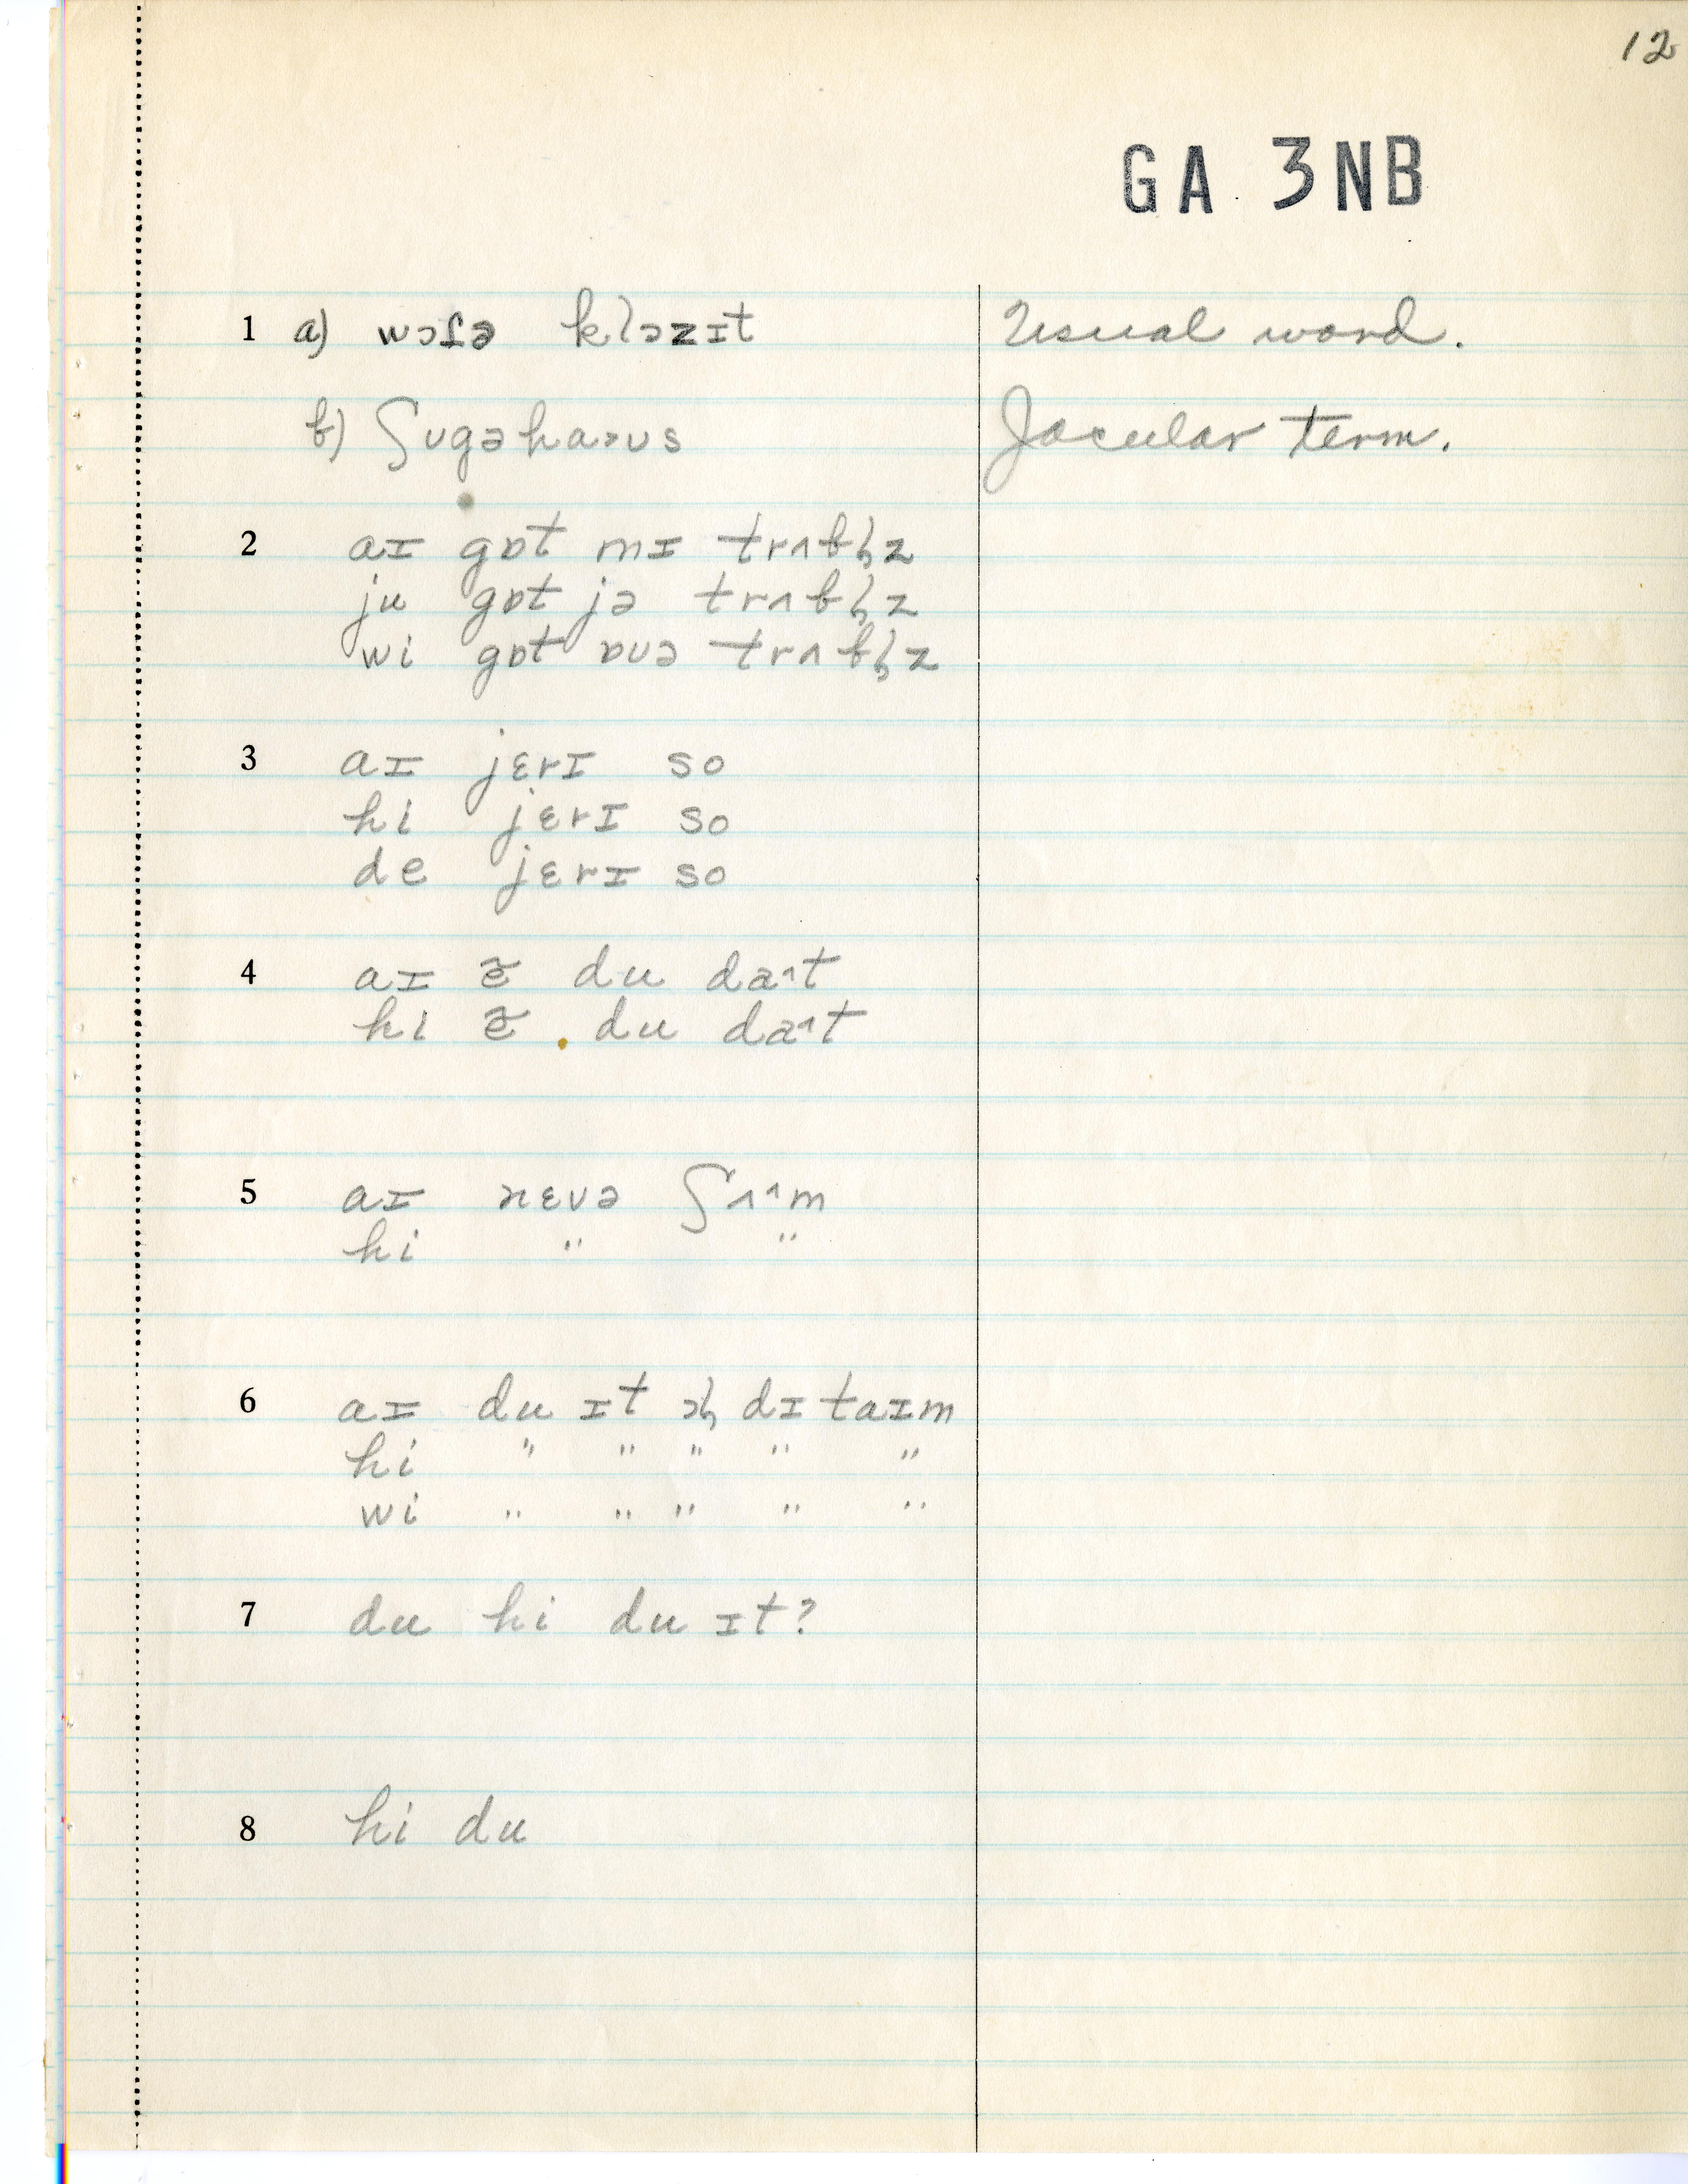 12
GA 3NB
1 a) wɔʃə klɔzɪt Usual word.
b) ʃugəhaʌus Jocular term.
2 aɪ gɒt mɪ trʌbl̩z
ju gɒt jə trʌbl̩z
wi gɒt ɒuə trʌbl̩z
3 aɪ jɛrɪ so
hi jɛrɪ so
de jɛrɪ so
4 aɪ ẽ du daˆt
hi ẽ du daˆt
5 aɪ nɛvə ʃʌˆm
hi " "
6 aɪ du ɪt ɔl̩ dɪ taɪm
hi " " " " "
wi " " " " "
7 du hi du ɪt?
8 hi du